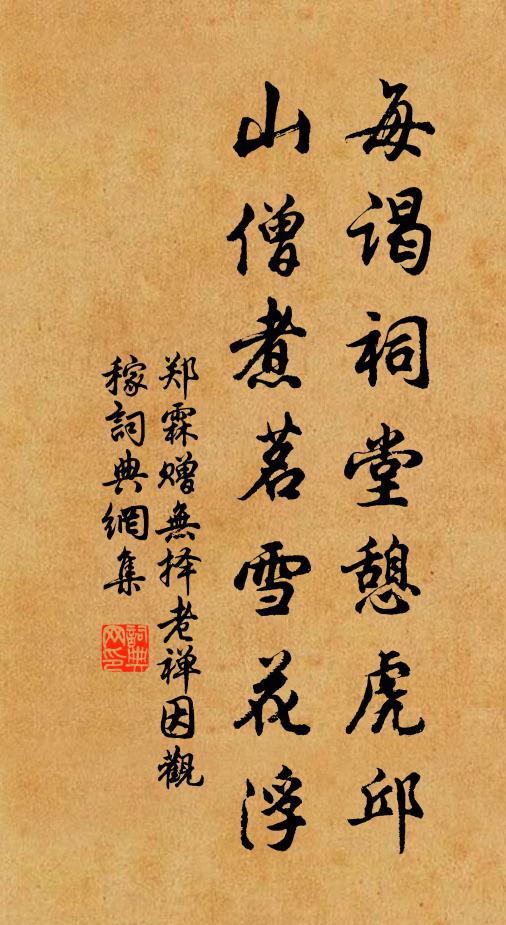 每谒祠堂憩虎邱
山僧煮茗雪花浮
郑霖赠無择老禅因觀
稼詞典網集
詞典網印